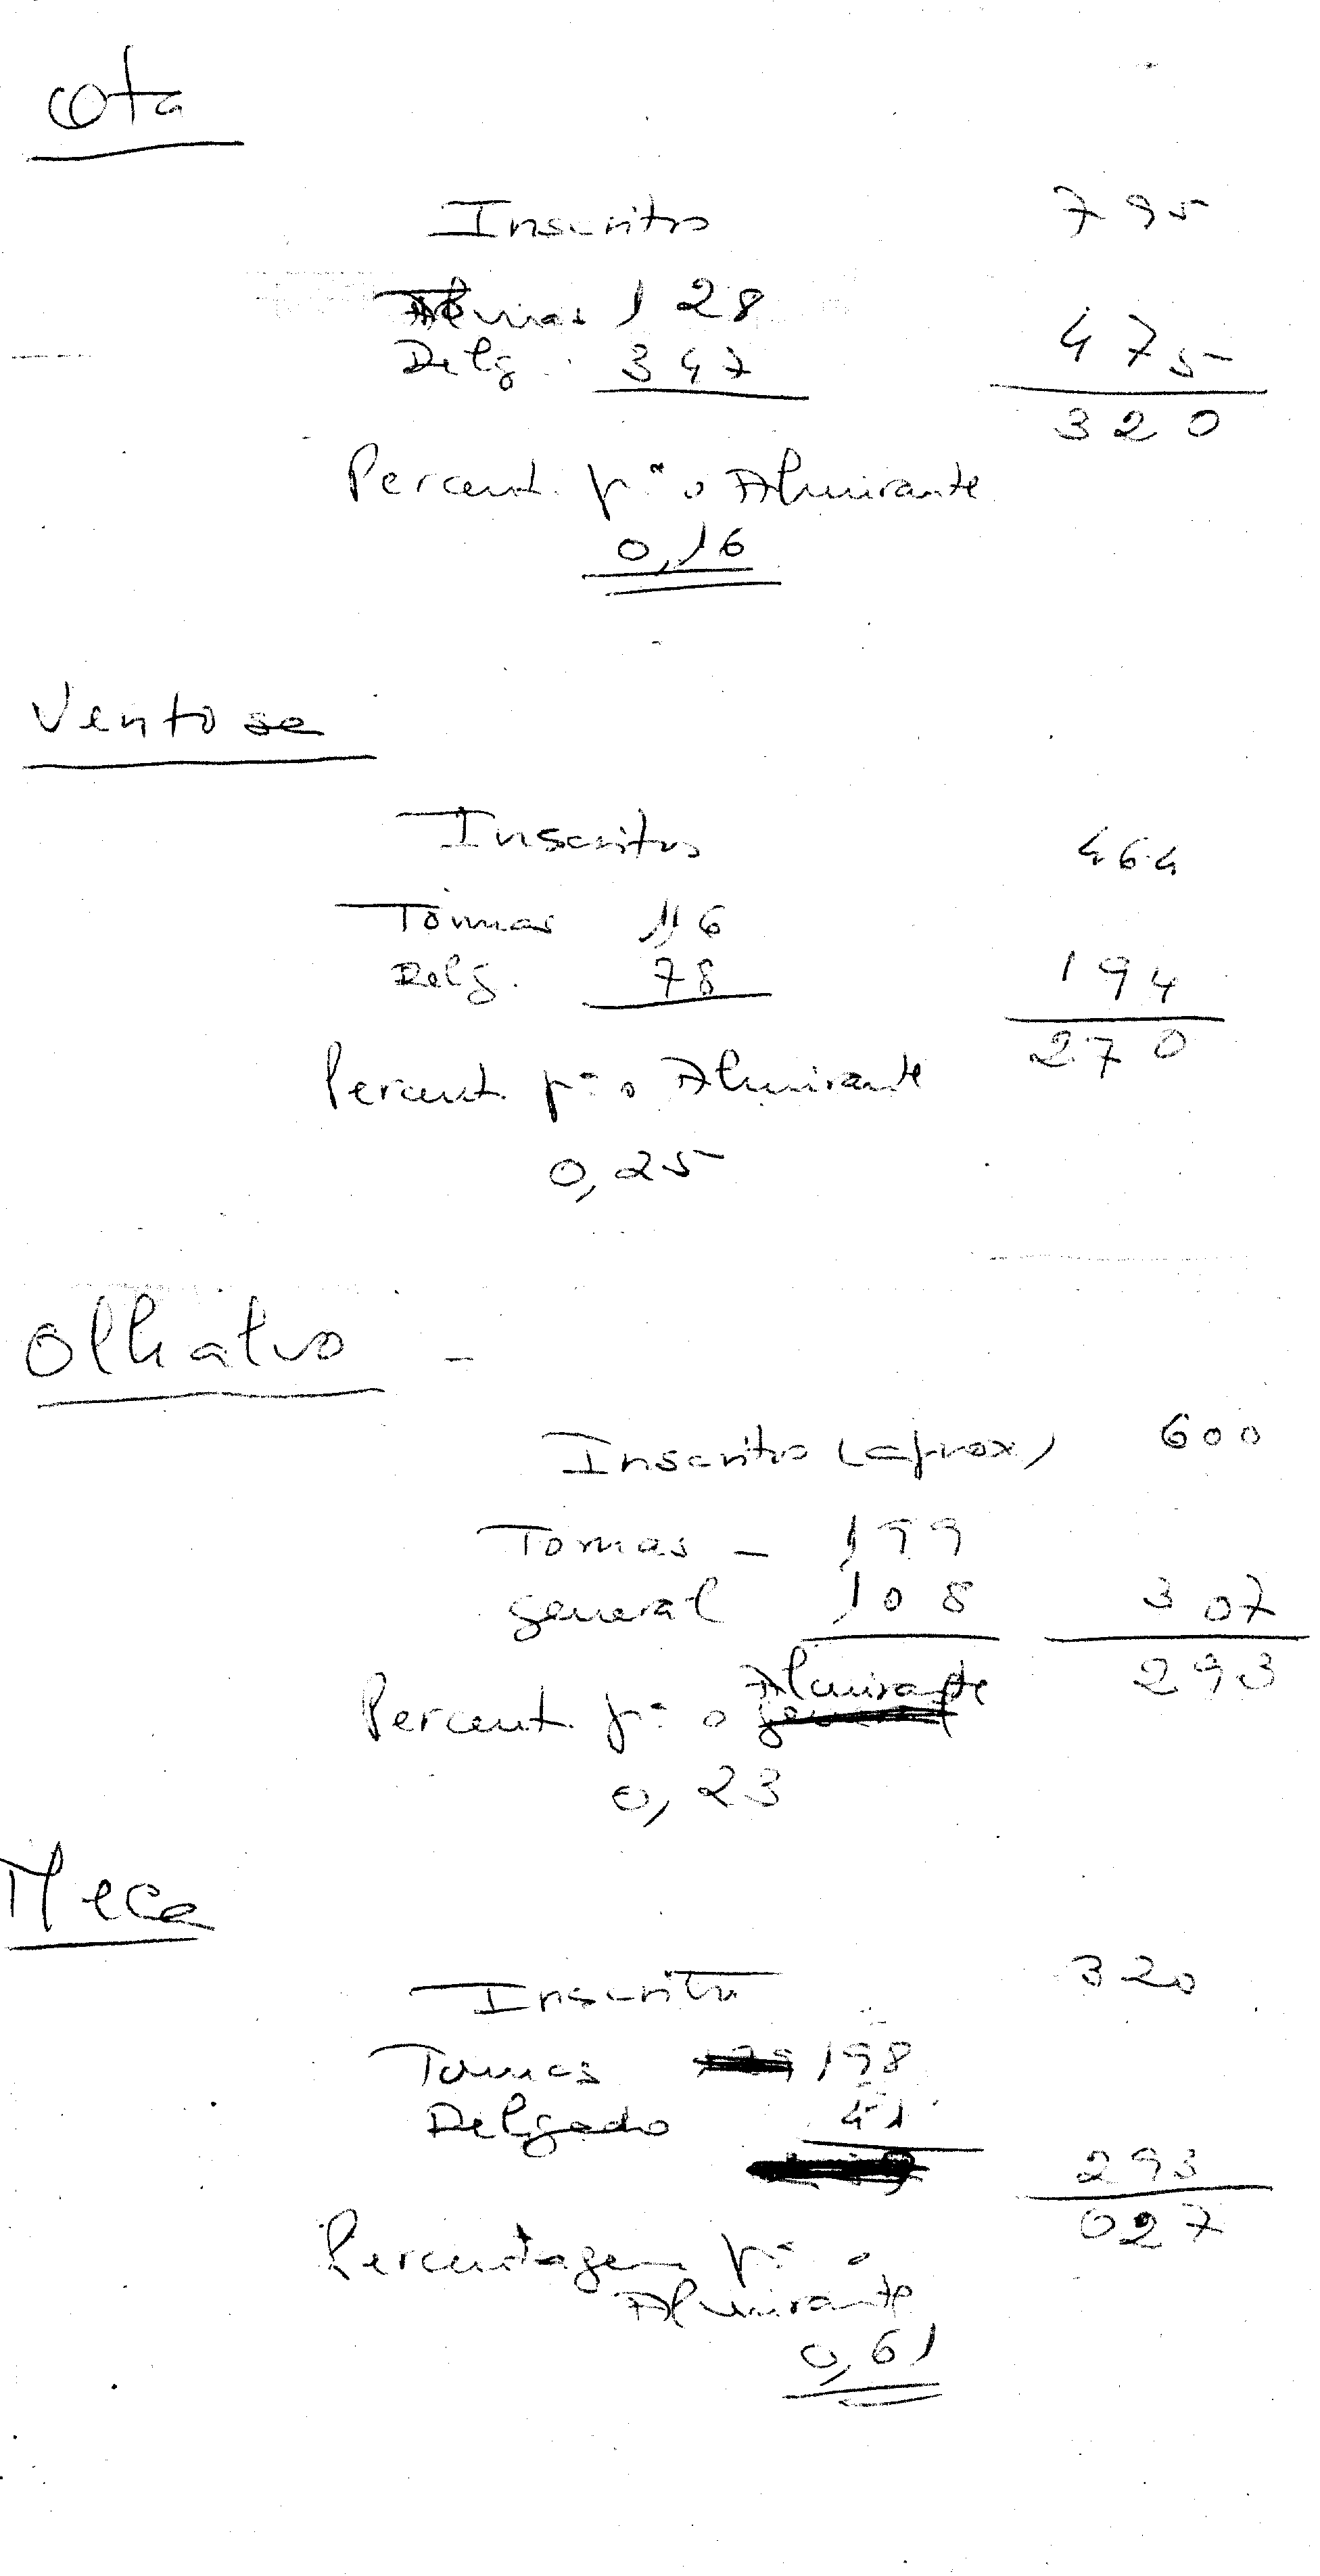 Ota
Inscritos 795
Tomas 128
Delg. 347 475
320
Percent. pª o Almirante
0,16
Ventosa
Inscritos 464
Tómas 116
Delg. 78 194
270
Percent. pª o Almirante
0,25
Olhalvo -
Inscritos (aprox) 600
Tomas - 199
general 108 307
293
Almirante
Percent. pª o general
0,23
Meca
Inscritos 320
Tomas 198
Delgado 41
293
027
Percentagem pª o
Almirante
0,61